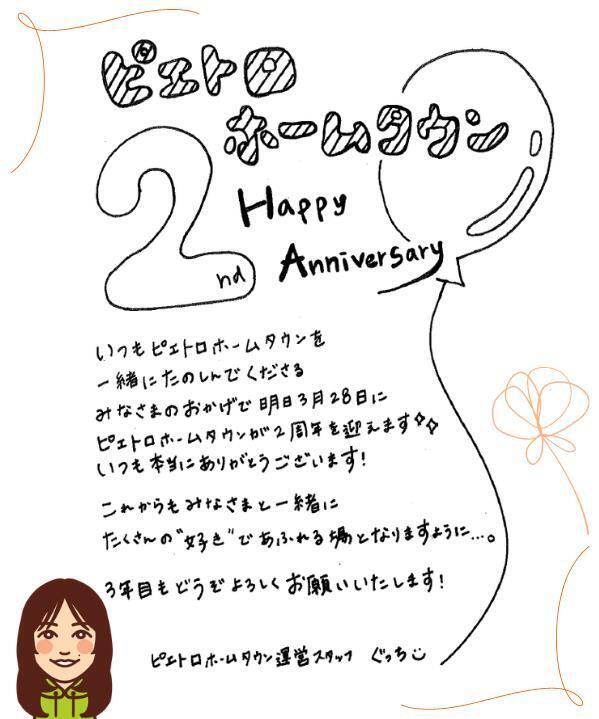 ピエトロ
ホームタウン
2nd
Happy
Anniversary
いつもピエトロホームタウンを
一緒にたのしんでくださる
みなさまのおかげで明日3月28日に
ピエトロホームタウンが2周年を迎えます✧✧
いつも本当にありがとうございます!
これからもみなさまと一緒に
たくさんの"好き"であふれる場となりますように...。
3年目もどうぞよろしくお願いいたします!
ピエトロホームタウン運営スタッフ ぐっち